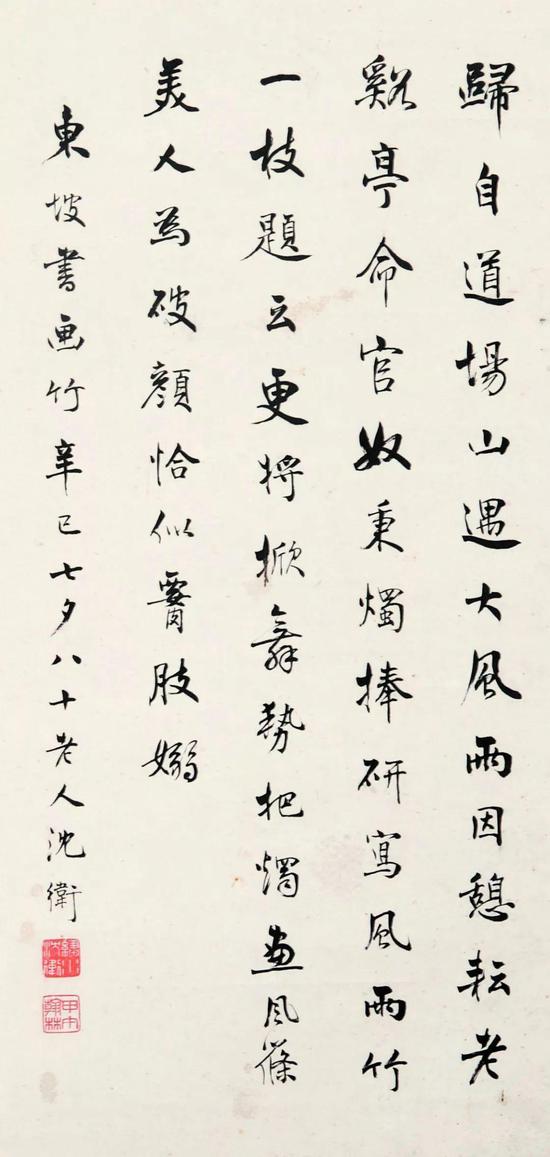 歸自道場山遇大風雨因憩耘老
谿亭命官奴秉燭捧研寫風雨竹
一枝題云更將掀舞勢把燭畫風篠
美人為破顏恰似腰肢嫋
東坡書画竹辛巳七夕八十老人沈衛
沈衛
甲午翰林